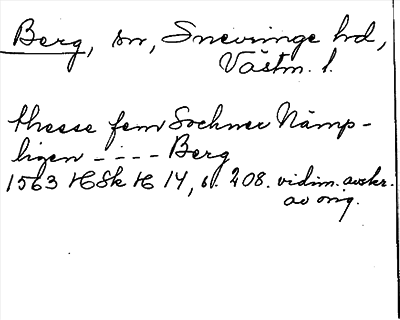 Berg, sn, Snevringe hd,
Västm. l.
thesse fem Sochner Nämp-
ligen - - - - Berg
1563 HSk H 14, s. 208. vidim. avskr.
av orig.